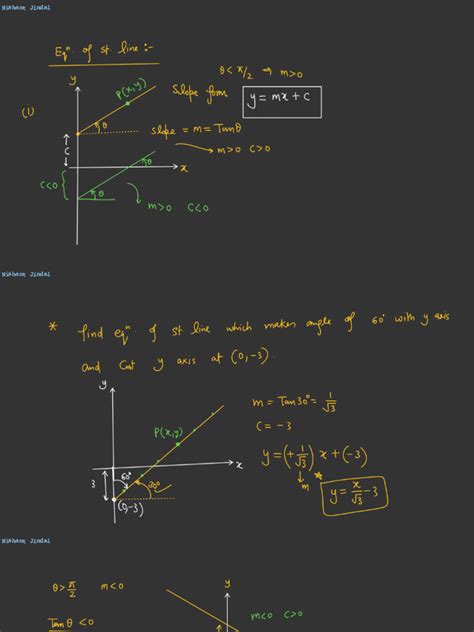 Nishant Jindal
Eqⁿ. of st line :-
θ < π/2 ⇒ m>0
y
P(x,y)
Slope form
y = mx + c
(1)
θ
slope = m = Tanθ
C
→ m>0 C>0
θ
x
C<0
θ
m>0 C<0
Nishant Jindal
* find eqⁿ of st line which makes angle of 60° with y axis
and cut y axis at (0,-3).
y
m = Tan30° = 1/√3
P(x,y)
C = -3
y = (+1/√3) x + (-3)
x
3
60°
30°
m
*
y = x/√3 - 3
(0,-3)
Nishant Jindal
θ > π/2 m<0
y
Tanθ <0
m<0 C>0